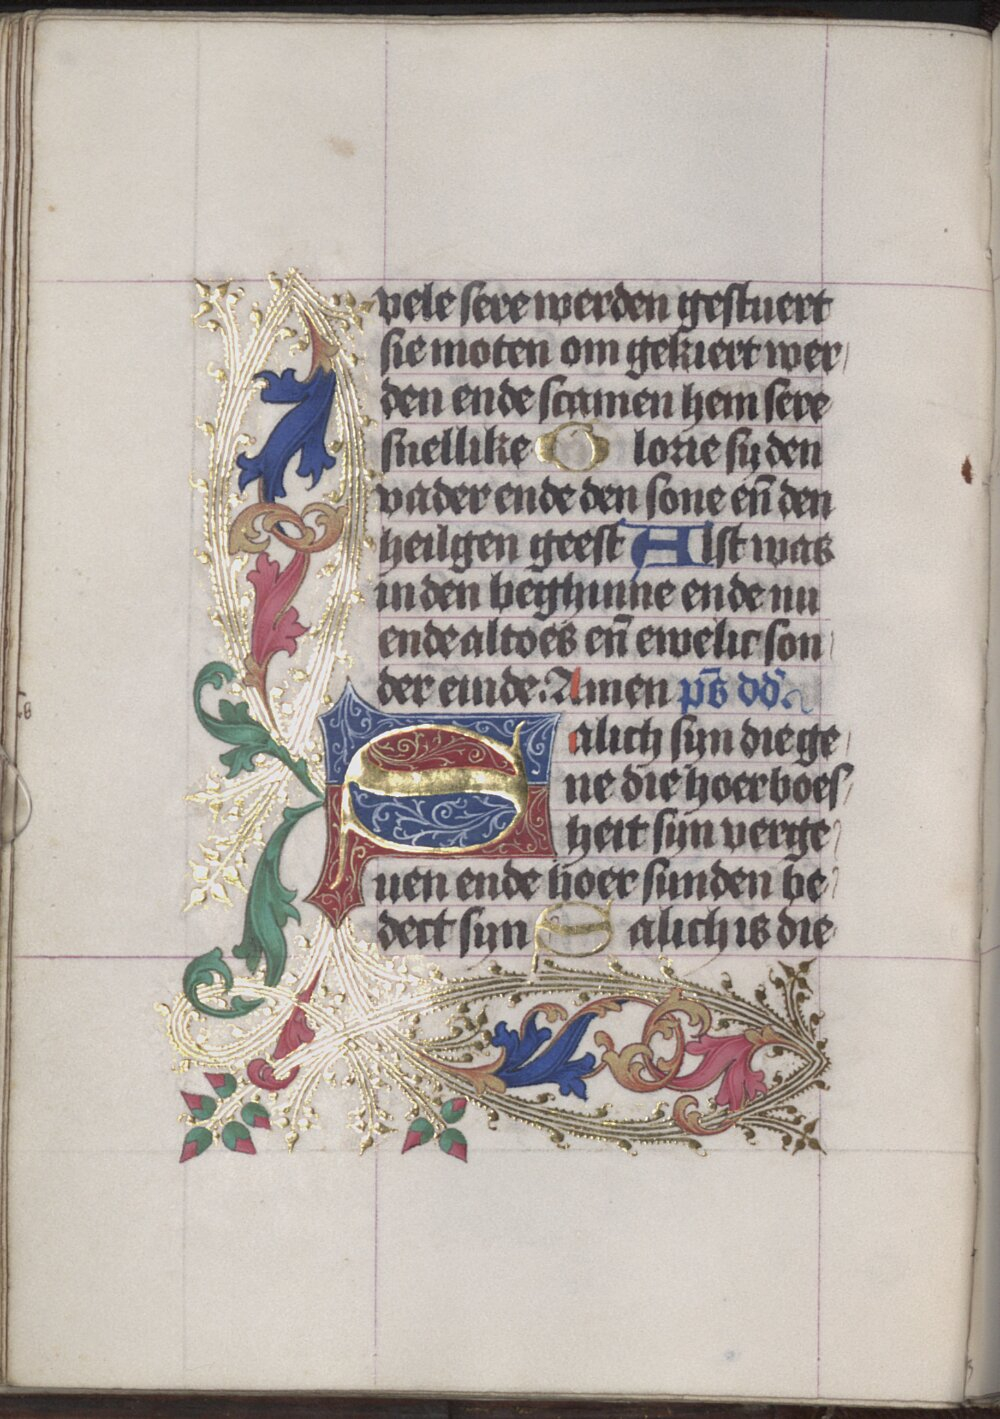 vele sere werden gestuert
sie moten om gekiert wer/
den ende scamen hem sere
snellike Glorie sy den
vader ende den sone eñ den
heilgen geest Alst was
in den beghinne ende nu
ende altoes eñ ewelic son
der einde. Amen ps̄ dd̄
Salich sijn die ge/
ne die hoer boes/
heit sijn verge/
uen ende hoer sunden be/
dect sijn Salich is die